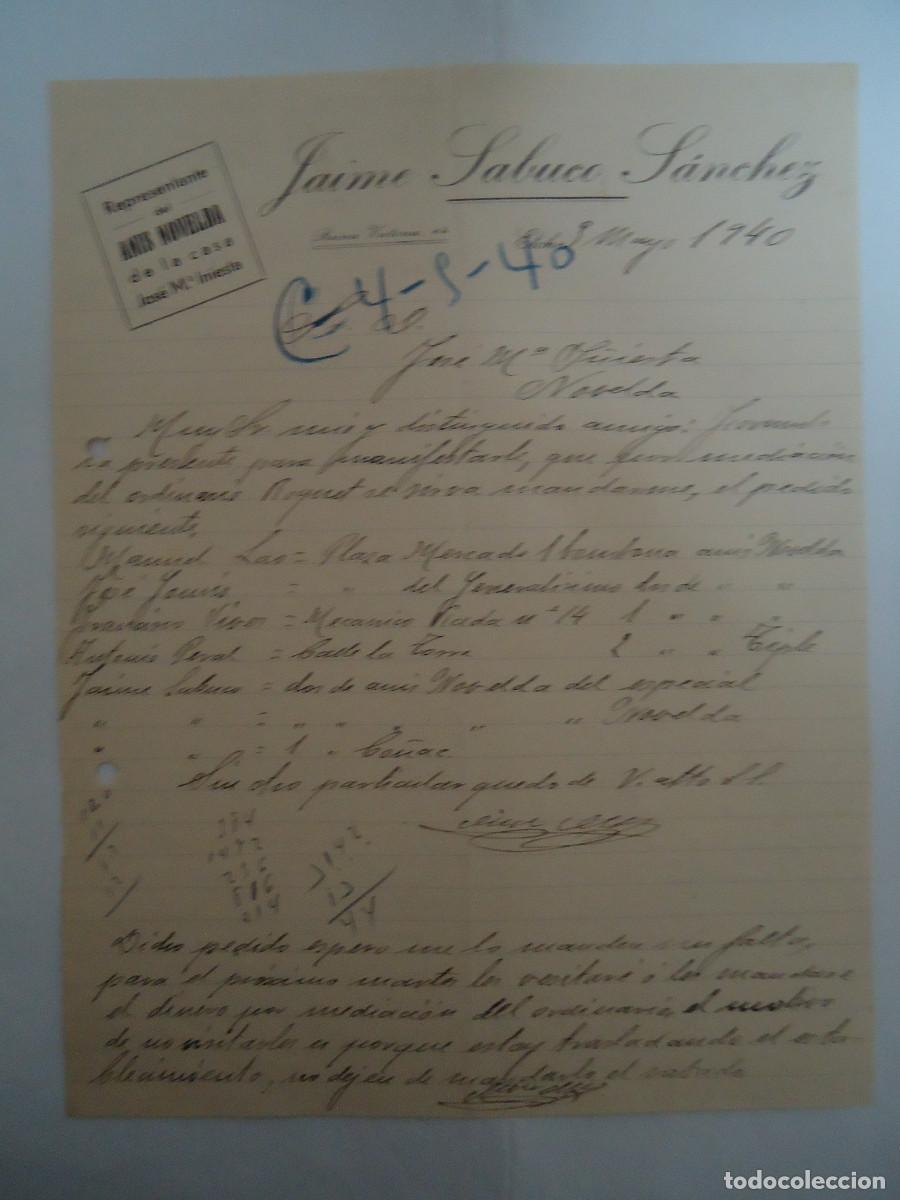 Representante
del
ANIS NOVELDA
de la casa
José Mª Iniesta
Jaime Sabuco Sánchez
Elche 3 Mayo 1940
C-4-5-40
José Mª Iniesta
Novelda
Muy Sr. mio y distinguido amigo:
la presente para manifestarle, que por mediación
del ordinario Roquet se sirva mandarme, el pedido
siguiente,
Manuel Lao = Plaza Mercado 1 bombona anis Novelda
José = " del Generalisimo dos de " "
Vives = Mecanico nº 14 1 " " "
Antonio Peral = Calle la Torre 2 " " Triple
Jaime Sabuco = dos de anis Novelda del especial
" " = " " " " " Novelda
" " = 1 " Coñac
Sin otro particular quedo de V. atto S.S.
Dicho pedido espero me lo manden sin falta,
para el próximo martes les visitaré ó les mandare
el dinero por mediación del ordinario, el motivo
de no visitarles es porque estoy trasladando el esta-
blecimiento, no dejen de mandarlo el sabado
todocoleccion